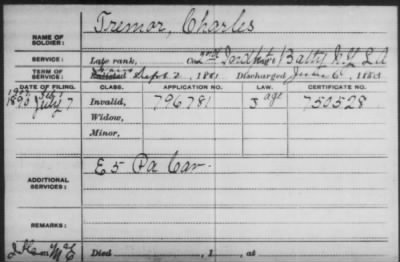 NAME OF SOLDIER: Tremor, Charles
SERVICE: Late rank, Co. Indpt Batty N.Y. L A
TERM OF SERVICE: Enlisted Sept. 2, 1861 Discharged June 6, 1863
DATE OF FILING. CLASS. APPLICATION NO. LAW. CERTIFICATE NO.
1890 July 7 Invalid, 796781 age 750528
Widow,
Minor,
ADDITIONAL SERVICES: E 5 Pa Cav.
REMARKS:
Died , 1 , at